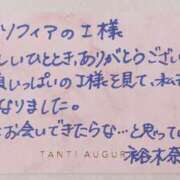 ソフィアのI様
しいひととき、ありがとうござい
良いっぱいのI様を見て、私も
なりました。
お会いできたらな…と思って
TANTI AUGUR
裕木奈